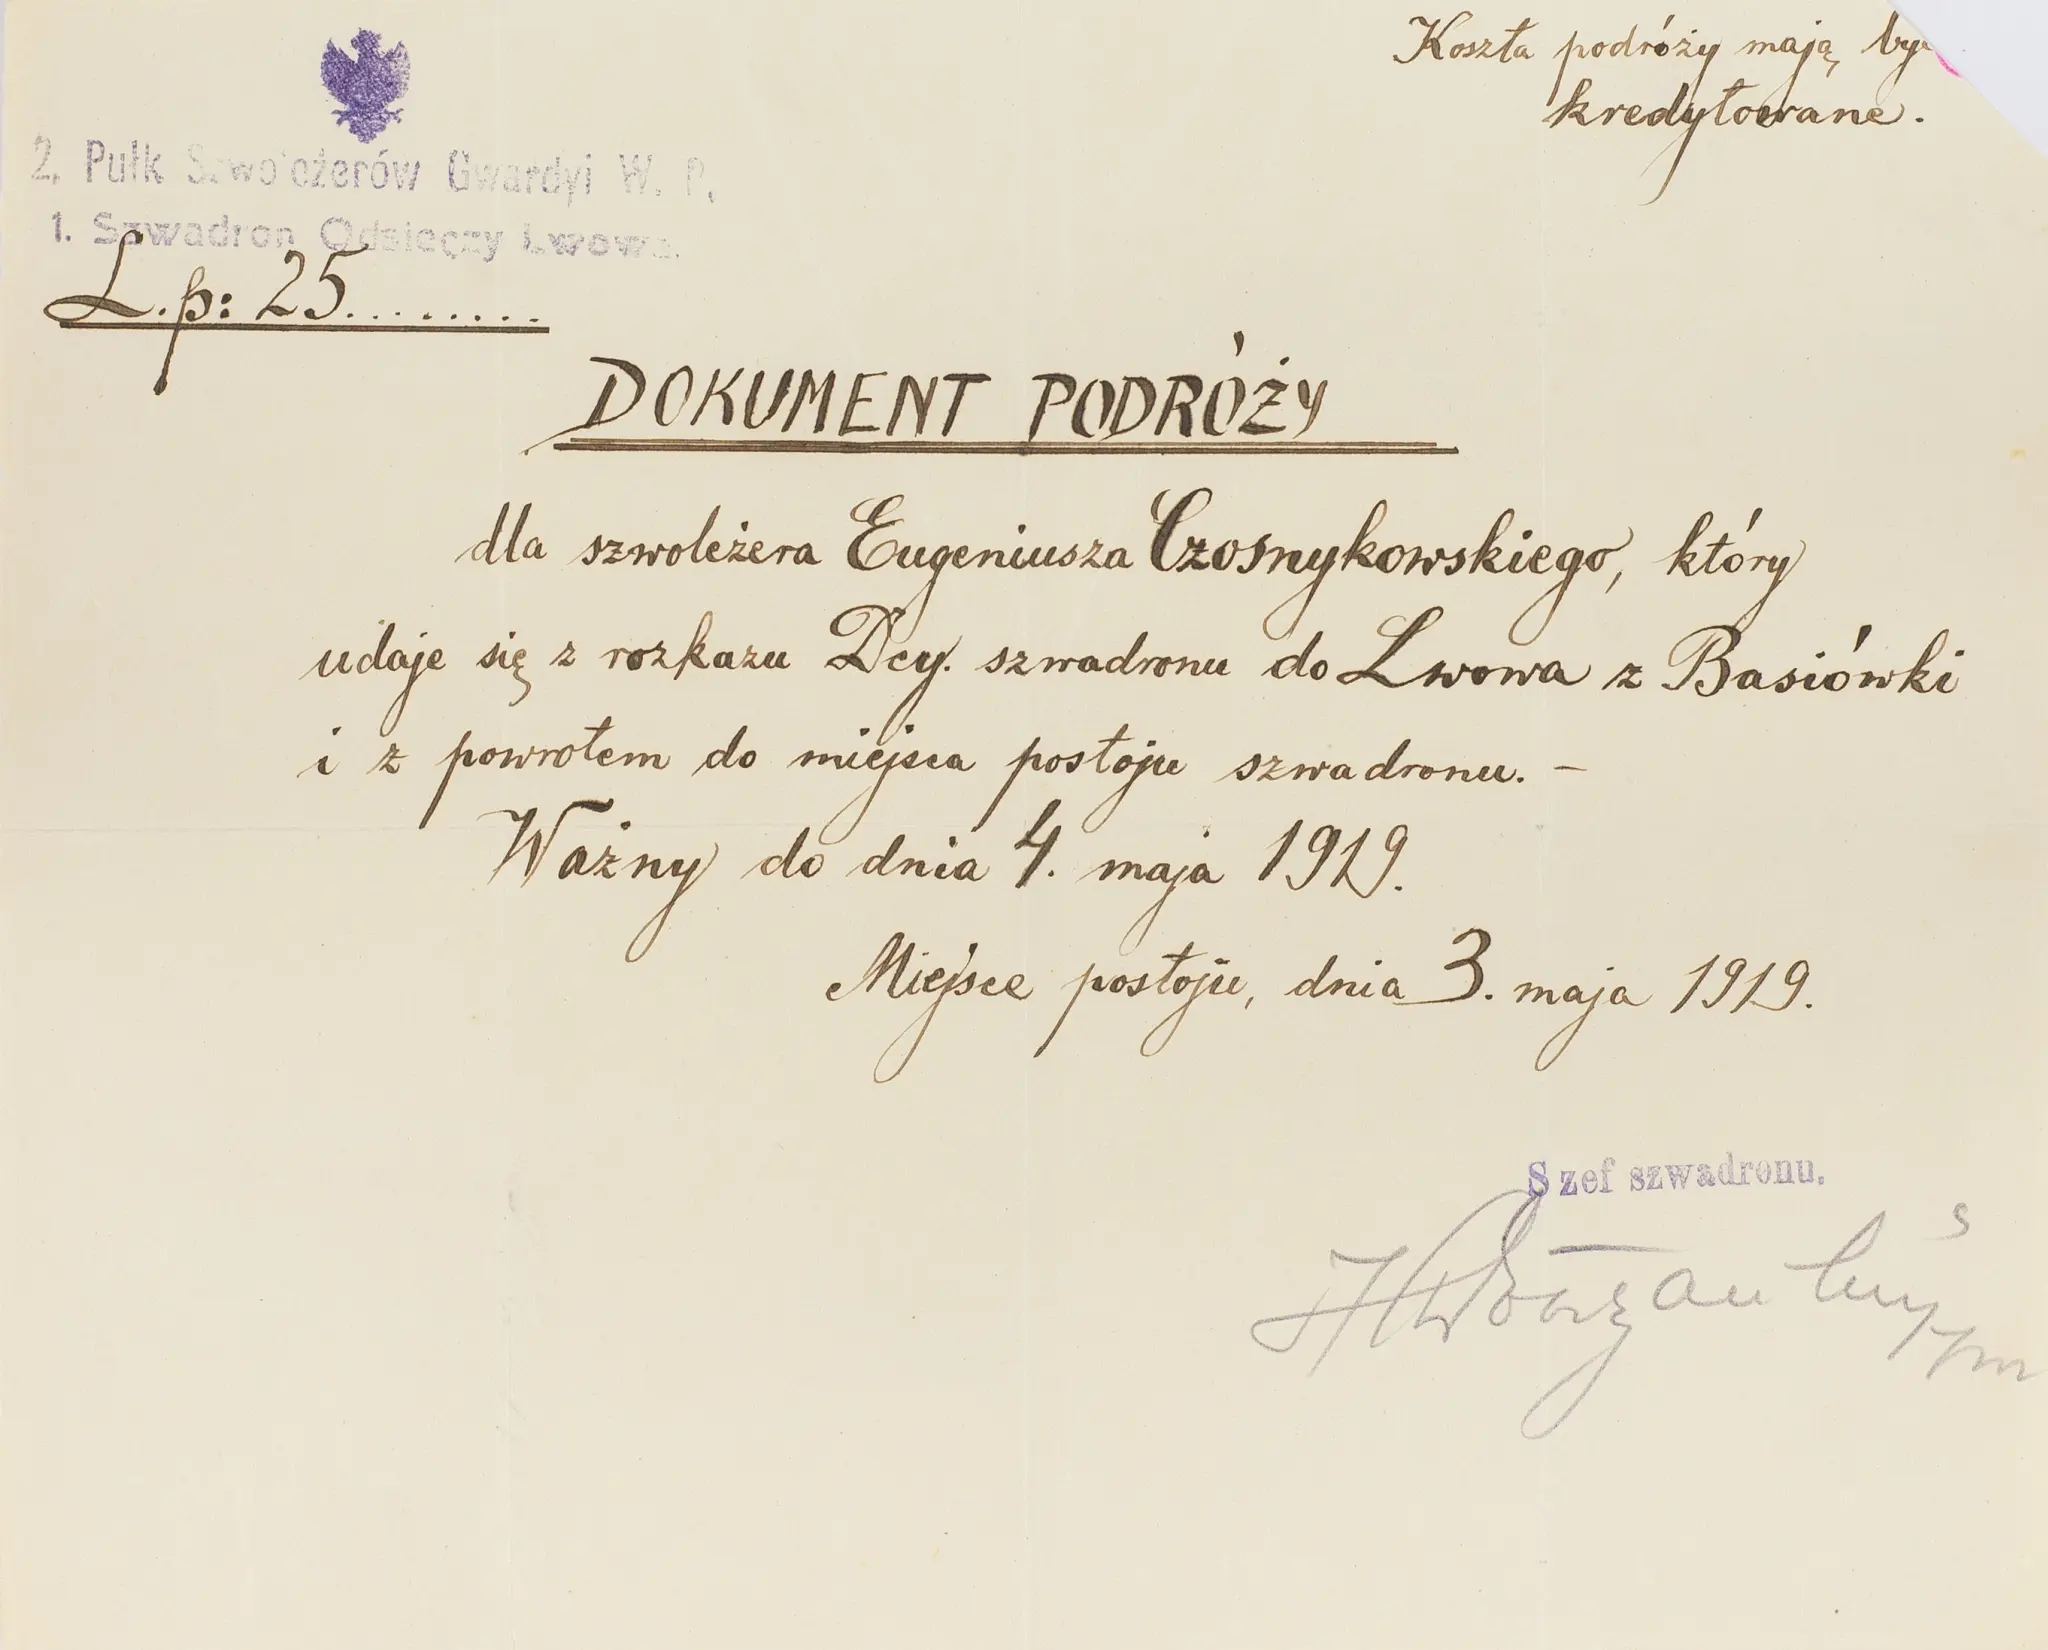 Koszta podróży mają być
kredytowane.
2. Pułk Szwoleżerów Gwardyi W. P.
1. Szwadron Odsieczy Lwowa.
L.p: 25.........
DOKUMENT PODRÓŻY
dla szwoleżera Eugeniusza Czosnykowskiego, który
udaje się z rozkazu Dcy. szwadronu do Lwowa z Basiówki
i z powrotem do miejsca postoju szwadronu. –
Ważny do dnia 4. maja 1919.
Miejsce postoju, dnia 3. maja 1919.
Szef szwadronu.